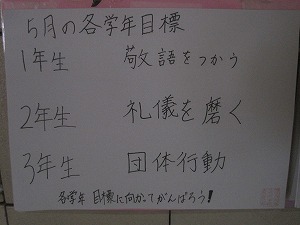 5月の各学年目標
1年生 敬語をつかう
2年生 礼儀を磨く
3年生 団体行動
各学年 目標に向かってがんばろう!